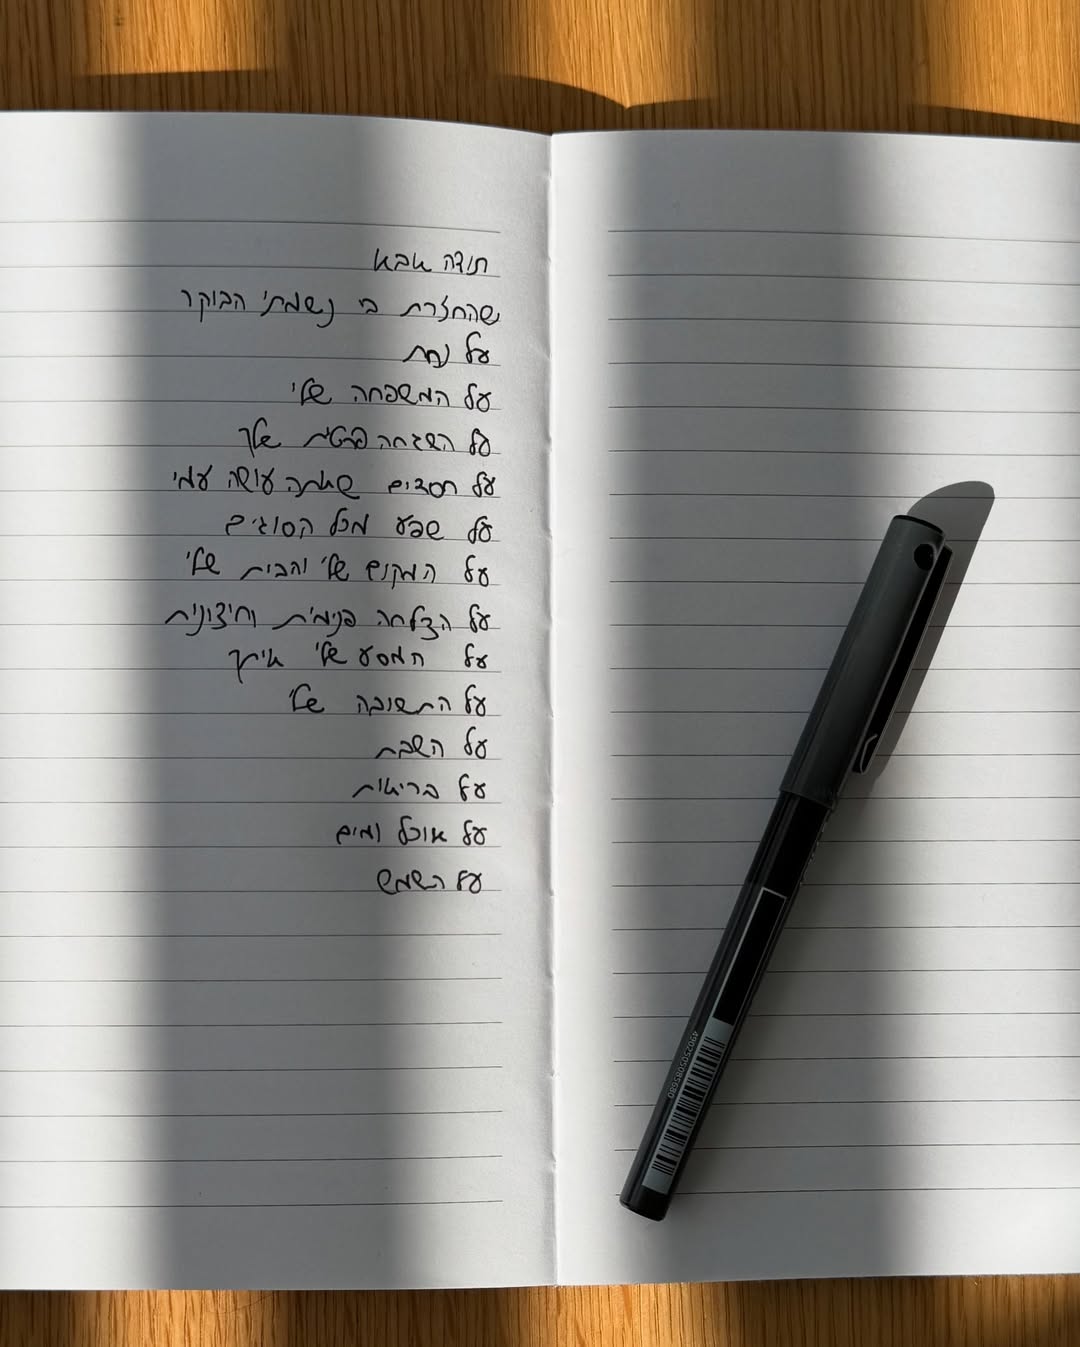 תודה אבא
שהחזרת בי נשמתי הבוקר
על נחת
על המשפחה שלי
על השגחה פרטית שלך
על חסדים שאתה עושה עמי
על שפע מכל הסוגים
על המקום שלי והבית שלי
על הצלחה פנימית וחיצונית
על המסע שלי איתך
על התשובה שלי
על השבת
על בריאות
על אוכל ומים
על השמש
4902505085680